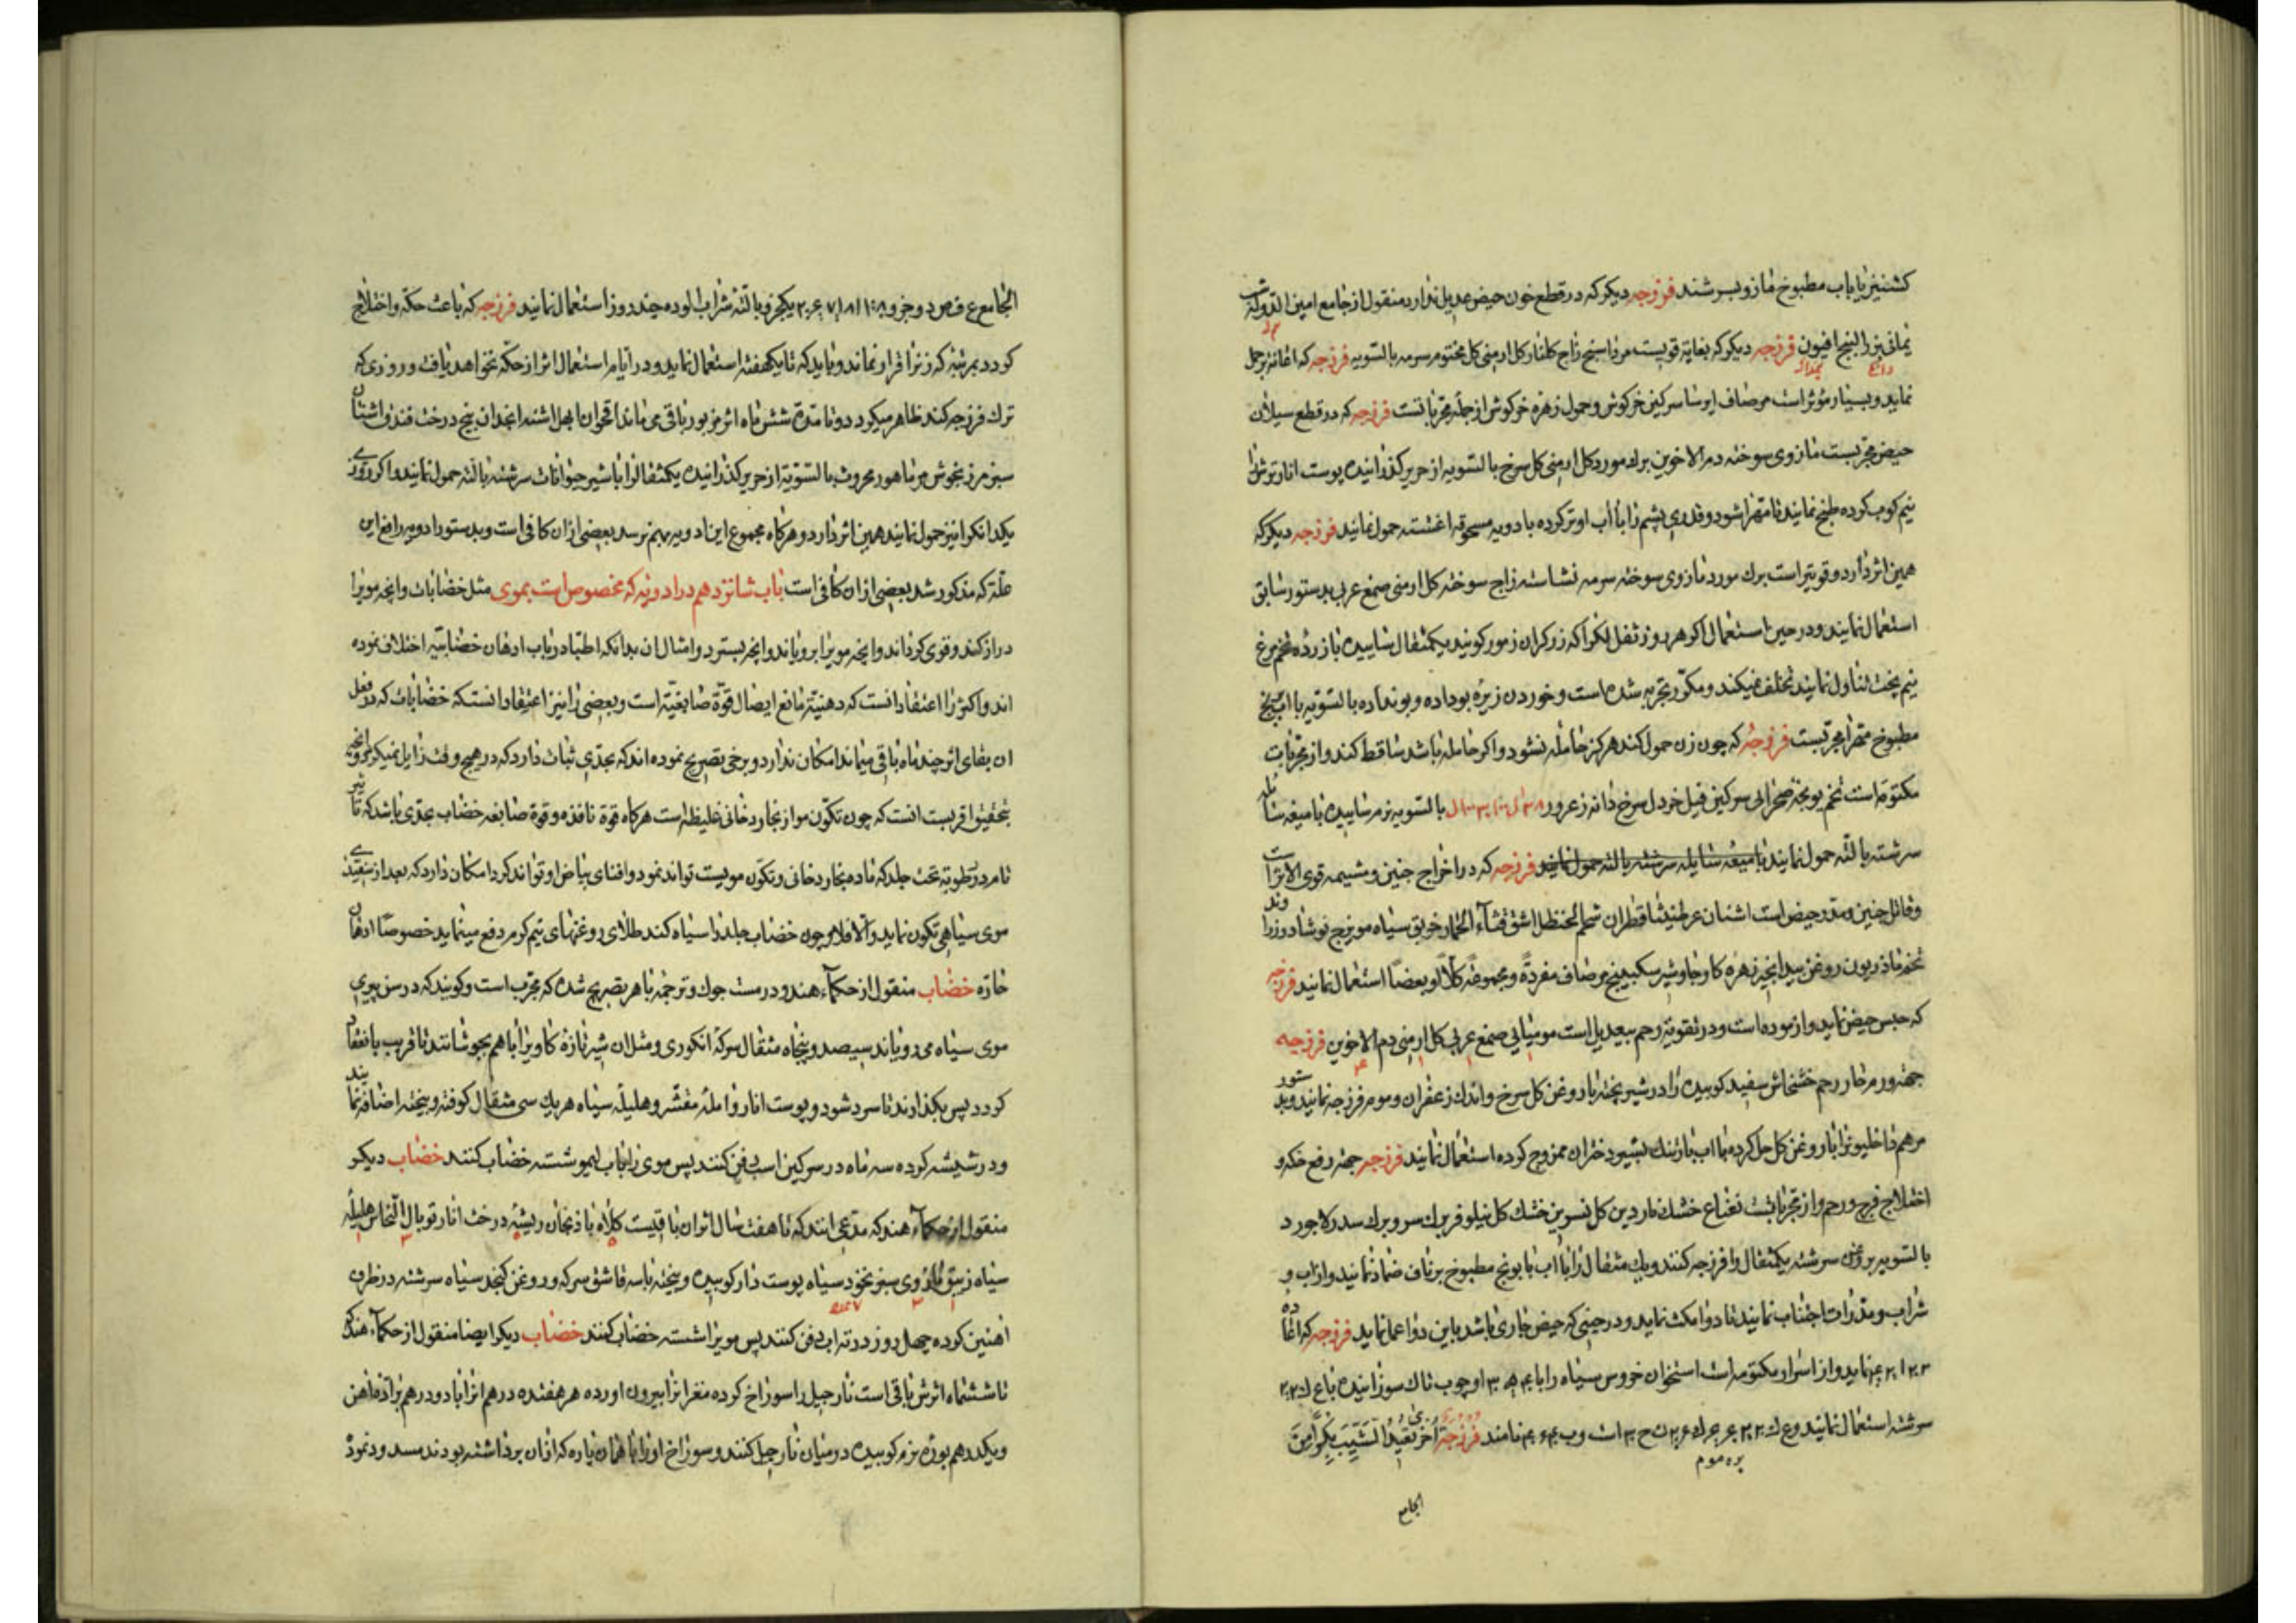 کشنیز یا باب مطبوخ مازو بسرشند فرزجه دیکر که در قطع خون حیض عدیل ندارد منقول از جامع امین الدوله شب
یمانی بزر البنج افیون فرزجه دیکر که بغایة قویست مرداسنج زاج کلنار کل ارمنی کل مختوم سرمه بالسویه فرزجه که اعانة بر حمل
نماید و بسیار مؤثر است مر صاف ایرسا سرکین خرکوش و حمول زهره خرکوش از جمله مجرباتست فرزجه که در قطع سیلان
حیض مجربست مازوی سوخته دم الاخوین برك مورد کل ارمنی کل سرخ بالسویه از حریر کذرانیده پوست انار ترش را
نیم کوب کرده طبخ نمایند تا مهرا شود و قدری پشم را بآب او تر کرده بادویه مسحوقه اغشته حمول نمایند فرزجه دیکر که
همین اثر دارد و قویتر است برك مورد مازوی سوخته سرمه نشاسته زاج سوخته کل ارمنی صمغ عربی بدستور سابق
استعمال نمایند و در حین استعمال اکر هر روز ثفل لکرا که زرکران زمور کویند یکمثقال ساییده با زرده تخم مرغ
نیم پخت تناول نمایند تخلف نمیکند و مکرر تجربه شده است و خوردن زیره بوداده و بونداده بالسویه با اب سنج
مطبوخ مهرا مجربست فرزجه که چون زن حمول کند هرکز حامله نشود و اکر حامله باشد ساقط کند و از مجربات
مکتومه است تخم یونجه صحرایی سرکین فیل خردل سرخ دانه زعرور بالسویه نرم ساییده با میعه سایله
سرشته بالته حمول نمایند با میعه سایله سرشته بالته حمول نمایند فرزجه که در اخراج جنین و مشیمه قوی الاثر است
و قاتل جنین و مدر حیض است اشنان عرطنیثا قطران شحم الحنظل اشق قثاء الحمار خربق سیاه مویزج نوشادر زراوند
تخم ماذریون روغن بیدانجیر زهره کاو جاوشیر سکبینج مر صاف مفردة و مجموعة کلا او بعضا استعمال نمایند فرزجه
که حبس حیض نماید و ازموده است و در تقویة رحم بیعدیل است مومیایی صمغ عربی کل ارمنی دم الاخوین فرزجه
جهة ورم حار رحم خشخاش سفید کوبیده را در شیر پخته با روغن کل سرخ و اندك زعفران و موم فرزجه نمایند و بدستور
مرهم داخلیون را با روغن کل حل کرده با اب بارتنك بشیر دختران ممزوج کرده استعمال نمایند فرزجه جهة رفع حکه و
اختلاج فرج و رحم و از مجرباتست نعناع خشك ناردین کل نسرین خشك کل نیلوفر برك سرو برك سدر لاجورد
بالسویه بروغن سرشته یکمثقال را فرزجه کنند و یك مثقال را بآب بابونج مطبوخ بر ناف ضماد نمایند و از اب و
شراب و مدرات اجتناب نمایند تا دوا مکث نماید و در حینی که حیض جاری باشد باین دوا عمل نماید فرزجه که اعاده
نماید و از اسرار مکتومه است استخوان خروس سیاه را با او چوب تاك سوزانیده
سرشته استعمال نمایند نامند فرزجة اخر تعید الثیب بکرا من
الجامع
الجامع ع ف ص د و جزو یکجزو بالته شراب الوده چند روز استعمال نمایند فرزجه که باعث حکه و اختلاج
کردد بمرتبه که زنرا قرار نماند و باید که تا یکهفته استعمال نماید و در ایام استعمال اثر از حکه نخواهد یافت و روزی که
ترك فرزجه کند ظاهر میکردد و تا مدة شش ماه اثر مزبور باقی می ماند اقحوان ابهل اشنه انجدان بیخ درخت فندق اشنان
سبز مرزنجوش مر ماهور محروث بالسویة از حریر کذرانیده یکمثقال را با شیر حیوانات سرشته بالته حمول نمایند و اکر روزی
یکدانکرا نیز حمول نمایند همین اثر دارد و هرکاه مجموع این ادویه بهم نرسد بعضی ازان کافی است و بدستور ادویه رافع این
علة که مذکور شد بعضی ازان کافی است باب شانزدهم در ادویه که مخصوص است بموی مثل خضابات و انچه مویرا
دراز کند و قوی کرداند و انچه مویرا برویاند و انچه بسترد و امثال ان بدانکه اطبا در باب ادهان خضابیه اختلاف نموده
اند و اکثر را اعتقاد انست که دهنیة مانع ایصال قوة صابغیة است و بعضی را نیز اعتقاد انستکه خضابات که در فعل
ان بقای اثر چند ماه باقی میماند امکان ندارد و برخی تصریح نموده اند که بحدی ثبات دارد که در هیچ وقت زایل نمیکردد و انچه
بتحقیق اقربست انست که چون تکون مو از بخار دخانی غلیظ است هرکاه قوة نافذه و قوة صابغه خضاب بحدی باشد که تاثیر
تام در رطوبة تحت جلد که ماده بخار دخانی و تکون مویست تواند نمود و افنای بیاض او تواند کرد امکان دارد که بعد از سفیدی
موی سیاهی تکون نماید و الا فلا و چون خضاب جلد را سیاه کند طلای روغنهای نیم کرم رفع مینماید خصوصا ادهان
حاره خضاب منقول از حکماء هند و در مست جوك و ترجمه باهر تصریح شده که مجرب است و کویند که در سن پیری
موی سیاه می رویاند سیصد و پنجاه مثقال سرکه انکوری و مثل ان شیر تازه کاو یرا باهم بجوشانند تا قریب بانعقاد
کردد پس بکذارند تا سرد شود و پوست انار و امله مقشر و هلیله سیاه هر یك سی مثقال کوفته و بیخته اضافه نمایند
و در شیشه کرده سه ماه در سرکین اسب دفن کنند پس موی را باب لیمو شسته خضاب کنند خضاب دیکر
منقول از حکماء هند که مدعی انند که تا هفت سال اثر ان باقیست کلاه باذنجان ریشه درخت انار توبال النحاس هلیله
سیاه زیبق مازوی سبز نخود سیاه پوست دار کوبیده و بیخته با سه قاشق سرکه و روغن کنجد سیاه سرشته در ظرف
اهنین کرده چهل روز در تراب دفن کنند پس مویرا شسته خضاب کنند خضاب دیکر ایضا منقول از حکماء هند که
تا ششماه اثرش باقی است نارجیل را سوراخ کرده مغز انرا بیرون اورده هر هفده درهم انرا با دو درهم براده اهن
و یکدرهم بوره نرم کوبیده در میان نارجیل کنند و سوراخ او را با همان پاره که ازان برداشته بودند مسدود نمود